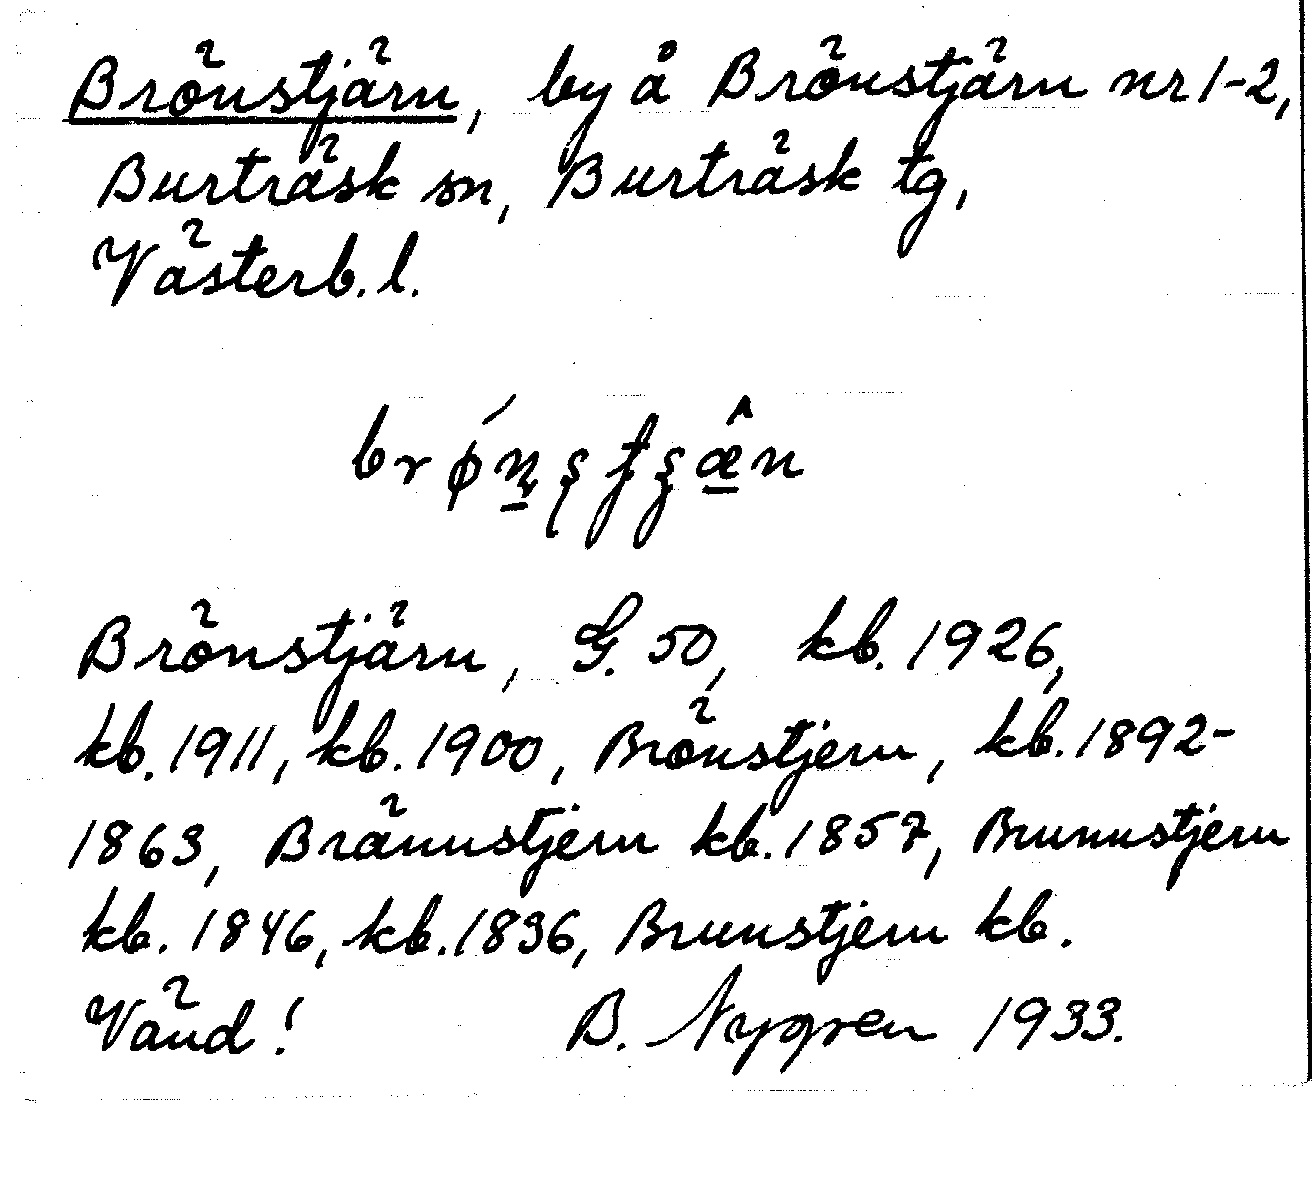 Brönstjärn, by å Brönstjärn nr 1-2,
Burträsk sn, Burträsk tg,
Västerb. l.
Brönstjärn, G. 50, kb. 1926,
kb. 1911, kb. 1900, Brönstjern, kb. 1892-
1863, Brännstjern kb. 1857, Brunnstjern
kb. 1846, kb. 1836, Brunstjern kb.
Vänd! B. Nygren 1933.